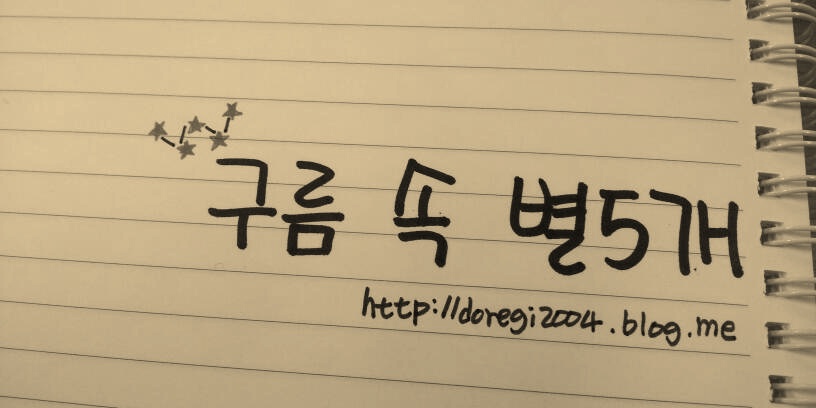 구름 속 별5개
http://doregi2004.blog.me